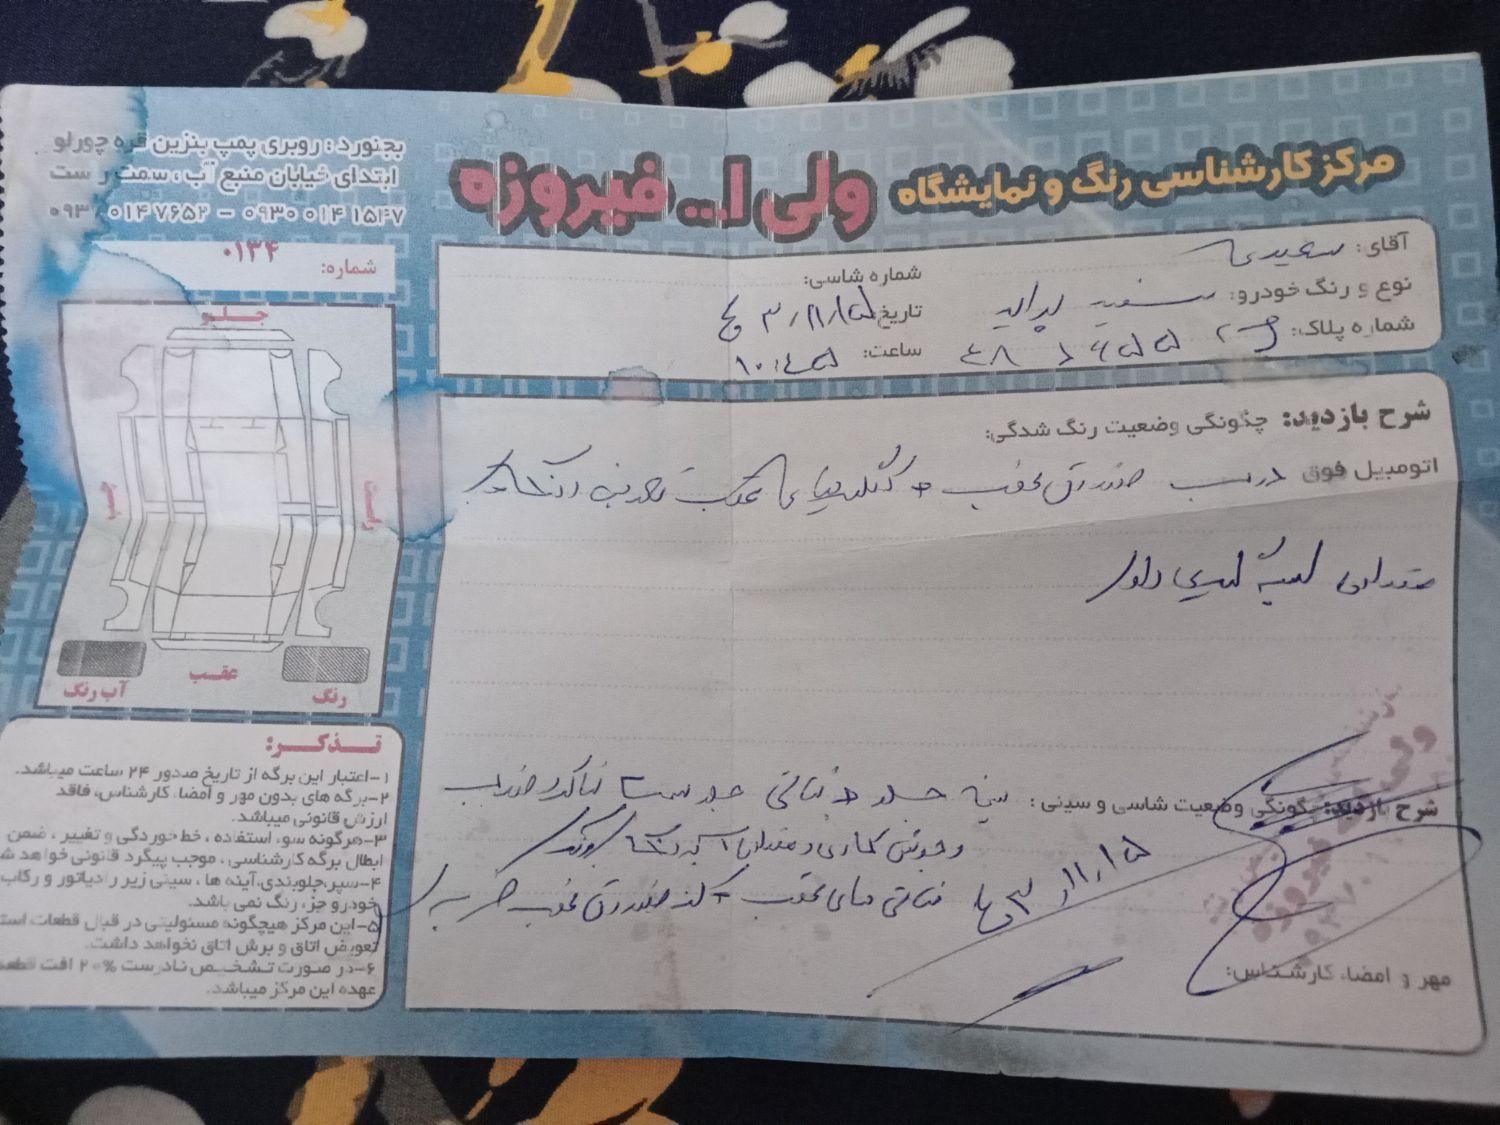 مرکز کارشناسی رنگ و نمایشگاه ولی ا... فیروزه
بجنورد : روبری پمپ بنزین قره چورلو
ابتدای خیابان منبع آب ، سمت راست
۰۹۳۰ ۰۱۴ ۱۵۴۷ - ۰۹۳ ۰۱۴ ۷۶۵۲
شماره: ۰۱۳۴
آقای: سعیدی
شماره شاسی:
نوع و رنگ خودرو: سفید پراید
تاریخ: ۱۵ / ۱۱ / ۳
شماره پلاک:
ساعت: ۱۰:۴۵
شرح بازدید: چگونگی وضعیت رنگ شدگی:
اتومبیل فوق درب صندوق عقب + گلگیر های عقب تعویض رنگ
مقداری لیسه گیری دارد
شرح بازدید: چگونگی وضعیت شاسی و سینی : سینی جلو + شاسی جلو سمت شاگرد ضرب
و جوش کاری و مقداری
شاسی های عقب + کف صندوق عقب ضربه
۱۵ / ۱۱ / ۳
مهر و امضاء کارشناس:
جلو
چپ
راست
عقب
آب رنگ
رنگ
تذکر:
۱-اعتبار این برگه از تاریخ صدور ۲۴ ساعت میباشد.
۲-برگه های بدون مهر و امضاء کارشناس، فاقد
ارزش قانونی میباشد.
۳-هرگونه سوء استفاده ، خط خوردگی و تغییر ، ضمن
ابطال برگه کارشناسی ، موجب پیگرد قانونی خواهد ش
۴-سپر،جلوبندی،آینه ها ، سینی زیر رادیاتور و رکاب
خودرو جزء رنگ نمی باشد.
۵-این مرکز هیچگونه مسئولیتی در قبال قطعات است
تعویض اتاق و برش اتاق نخواهد داشت.
۶-در صورت تشخیص نادرست ۲۰% افت قطعه
عهده این مرکز میباشد.